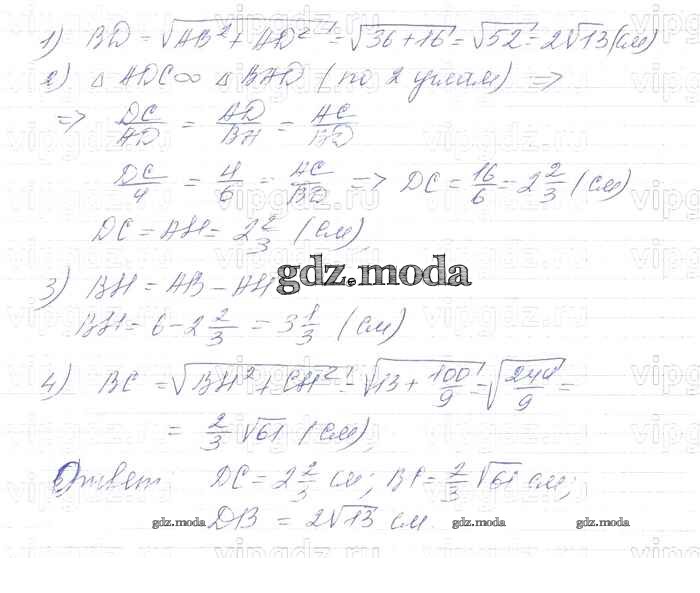 1) BD = √AB² + AD² = √36+16 = √52 = 2√13 (см)
2) △ ADC ∞ △ BAD (по 2 углам) =>
=> DC/AD = AD/BA = AC/BD
DC/4 = 4/6 = AC/BD => DC = 16/6 = 2 2/3 (см)
DC = AH = 2 2/3 (см)
3) BH = AB - AH
gdz.moda
BH = 6 - 2 2/3 = 3 1/3 (см)
4) BC = √BH² + CH² = √13 + 100/9 = √244/9 =
= 2/3 √61 (см)
Ответ: DC = 2 2/3 см; BC = 2/3 √61 см;
DB = 2√13 см.
gdz.moda gdz.moda gdz.moda gdz.moda